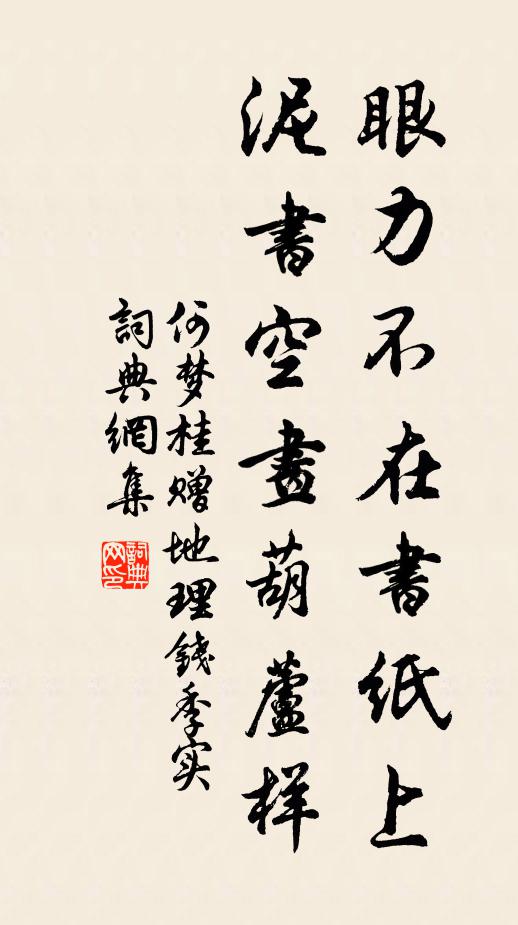 眼力不在書紙上
泥書空畫葫蘆样
何梦桂赠地理錢季实
詞典網集
詞典网印